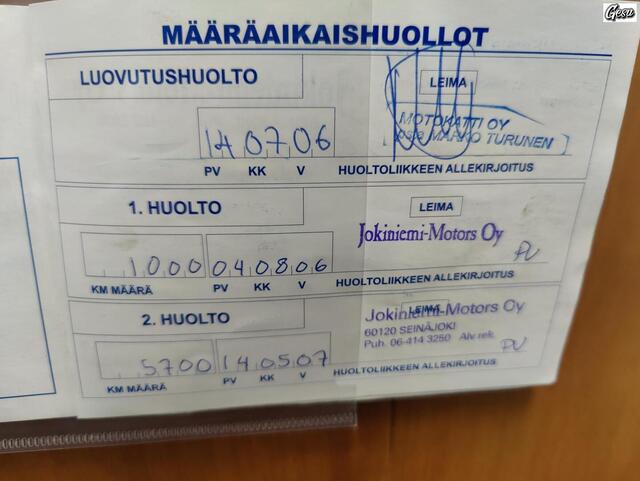 Gesu
MÄÄRÄAIKAISHUOLLOT
LUOVUTUSHUOLTO
LEIMA
MOTOKATTI OY
MARKO TURUNEN
14 07 06
PV KK V HUOLTOLIIKKEEN ALLEKIRJOITUS
1. HUOLTO
LEIMA
Jokiniemi-Motors Oy
1000 04 08 06
PV
KM MÄÄRÄ PV KK V HUOLTOLIIKKEEN ALLEKIRJOITUS
2. HUOLTO
LEIMA
Jokiniemi-Motors Oy
60120 SEINÄJOKI
Puh. 06-414 3250 Alv rek.
5700 14 05 07
PV
KM MÄÄRÄ PV KK V HUOLTOLIIKKEEN ALLEKIRJOITUS